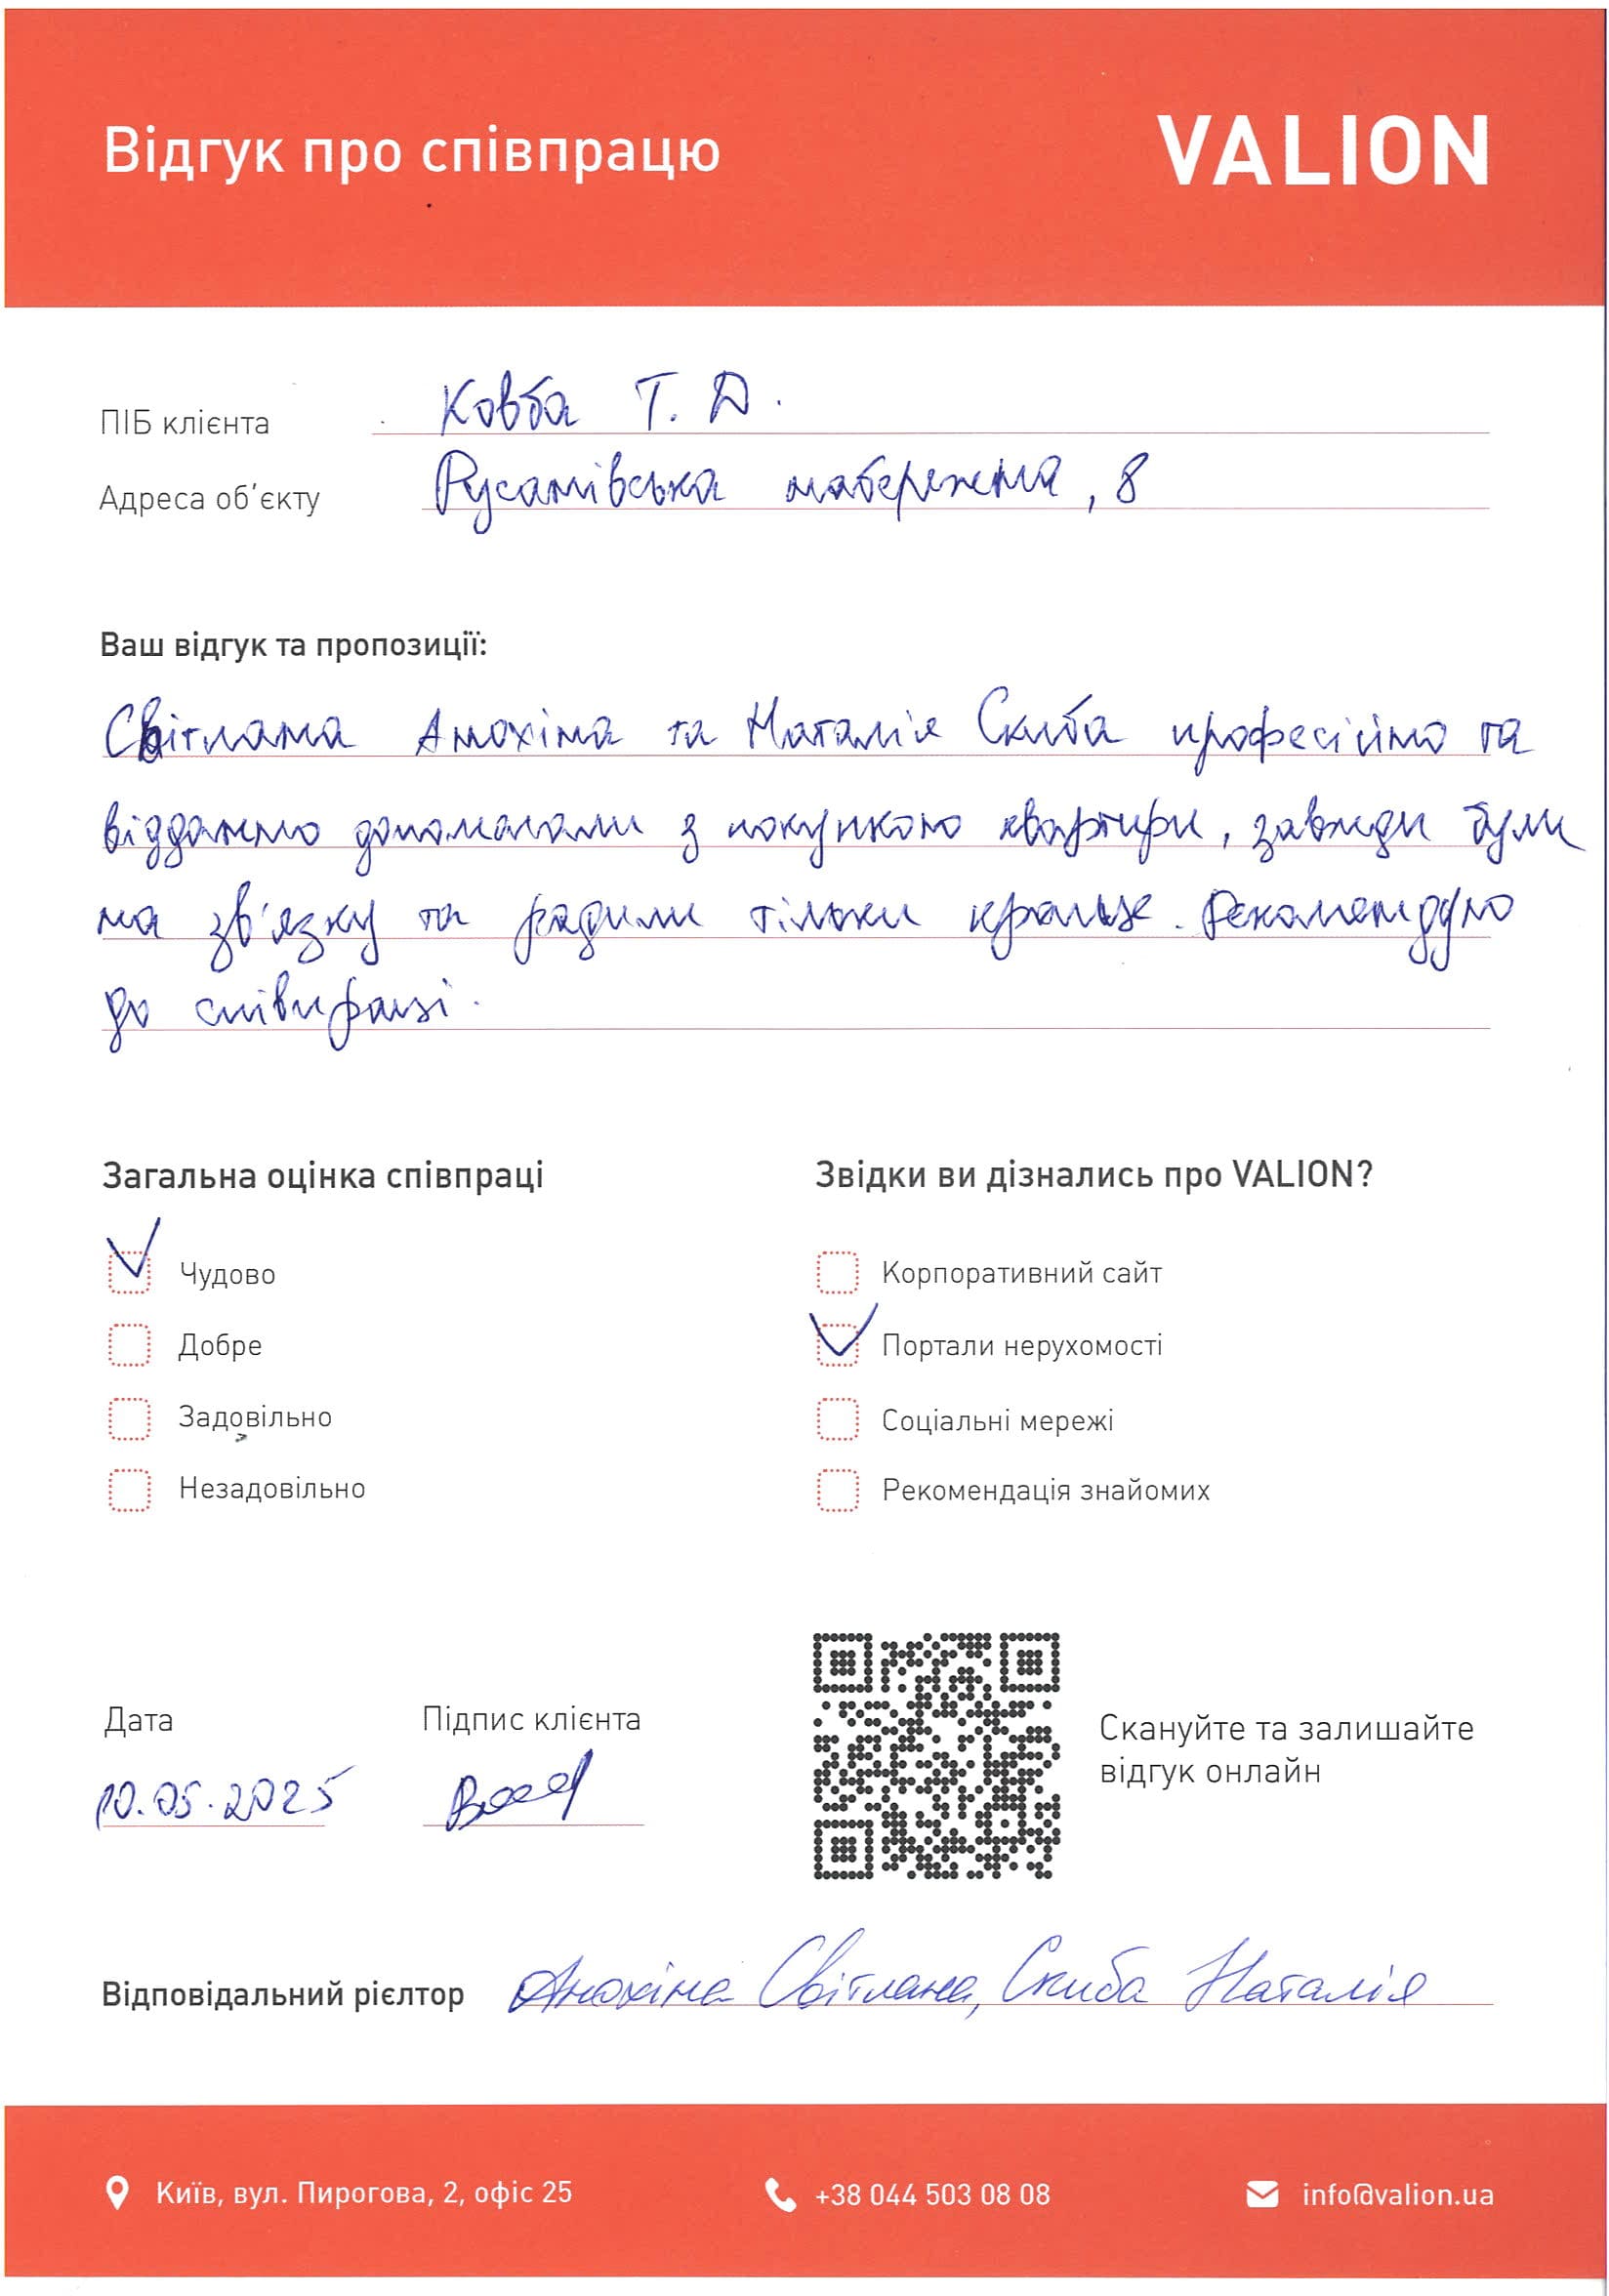 Відгук про співпрацю VALION
ПІБ клієнта Ковба Т. Д.
Адреса об'єкту Русанівська набережна, 8
Ваш відгук та пропозиції:
Світлана Анохіна та Наталія Скиба професійно та
віддано допомагали з покупкою квартири, завжди були
на зв'язку та радили тільки краще. Рекомендую
до співпраці.
Загальна оцінка співпраці
Чудово
Добре
Задовільно
Незадовільно
Звідки ви дізнались про VALION?
Корпоративний сайт
Портали нерухомості
Соціальні мережі
Рекомендація знайомих
Дата
10.05.2025
Підпис клієнта
Скануйте та залишайте
відгук онлайн
Відповідальний рієлтор Анохіна Світлана, Скиба Наталія
Київ, вул. Пирогова, 2, офіс 25 +38 044 503 08 08 info@valion.ua